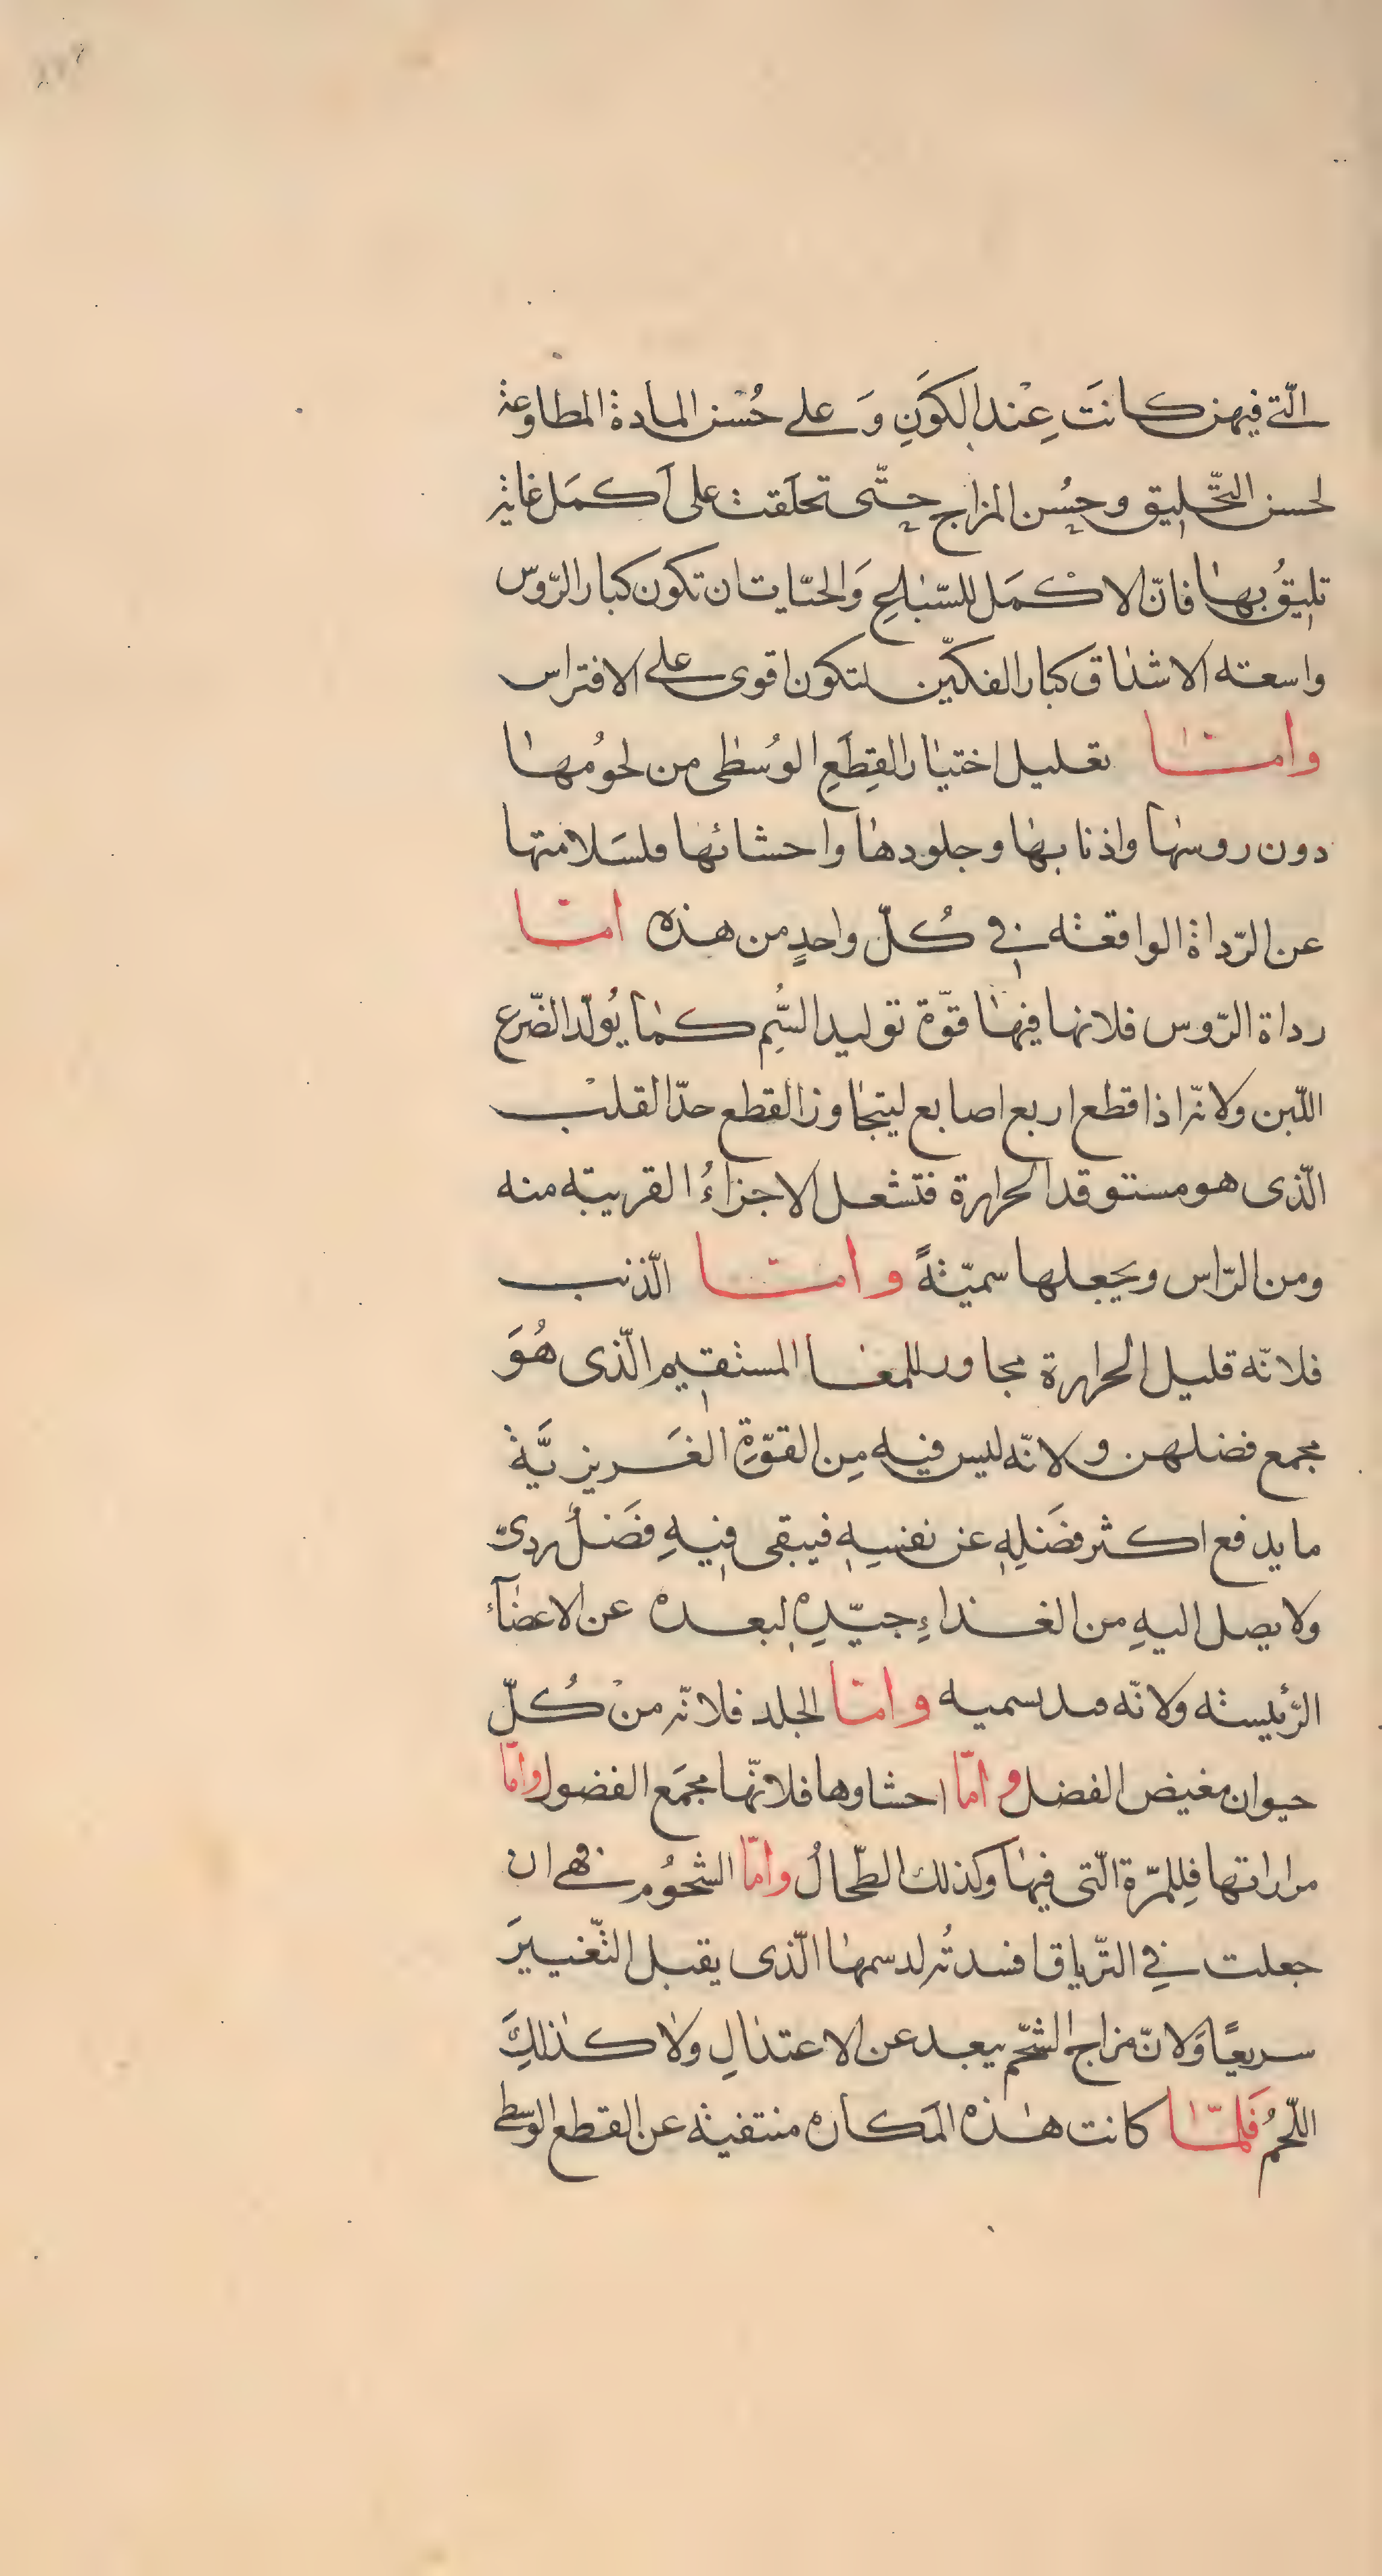 الّتے فيهن كانَت عِنْد الكَوَنِ وَعلے حُسْن المادة المطاوعة
لحسن التّخليق وحُسن المزاج حتّى تخلَقت على أكمَل غاية
تليقُ بهٰا فانّ الاكْمَل للسّباع وَالحيّات ان تكون كبار الرّوس
واسعته الاشداق كبار الفكّين لتكون اقوى علے الافتراس
وامّا تعليل اختيٰار القِطَعِ الوُسطٰى من لحوُمهٰا
دون روسهٰا واذنا بهٰا وجلودهٰا واحشائها فلسَلامتها
عن الرّداة الواقعته فى كُلّ واحدٍ من هذه امّا
رداة الرّوس فلانها فيهٰا قوّة توليد السُّم كمٰا يُولّد الضّرع
اللّبن ولانّه اذا قطع اربع اصابع ليتجٰاوز القطع حدّ القلْب
الّذى هو مستوقد الحرارة فتشعل الاجزاءُ القريبته منه
ومن الرّاس ويجعلها سميّةً وامّا الّذنب
فلانّه قليل الحرارة مجاور للمعا المستقيم الّذى هُوَ
مجمع فضلهن ولانّه ليس فيه مِن القوّةِ الغَريزيَّة
ما يدفع اكثر فضَلِهِ عن نفسِهِ فيبقى فيهِ فَضَلٌ ردىّ
ولا يصل اليهِ من الغذاءِ جيّدِهِ لبعده عن الاعضٰآء
الرّئيسته ولانّه سميه وامّا الجلد فلانّه منْ كُلّ
حيوان مغيض الفضل وامّا احشاوها فلانّها مجمَع الفضول وامّا
مراراتها فِللمرّة الّتى فيهٰا وكذلك الطّحالُ وامّا الشحوُم فهے ان
جعلت فِي التّرياق افسدتُه لدسمهٰا الّذى يقبل التّغييرَ
سريعًا وَلانّ مزاج الشّحم يبعد عن الاعتدٰالِ ولا كذٰلكَ
اللّحمُ فَلمّا كانت هٰذه المَكاره منتفيته عن القطع الوسّطى